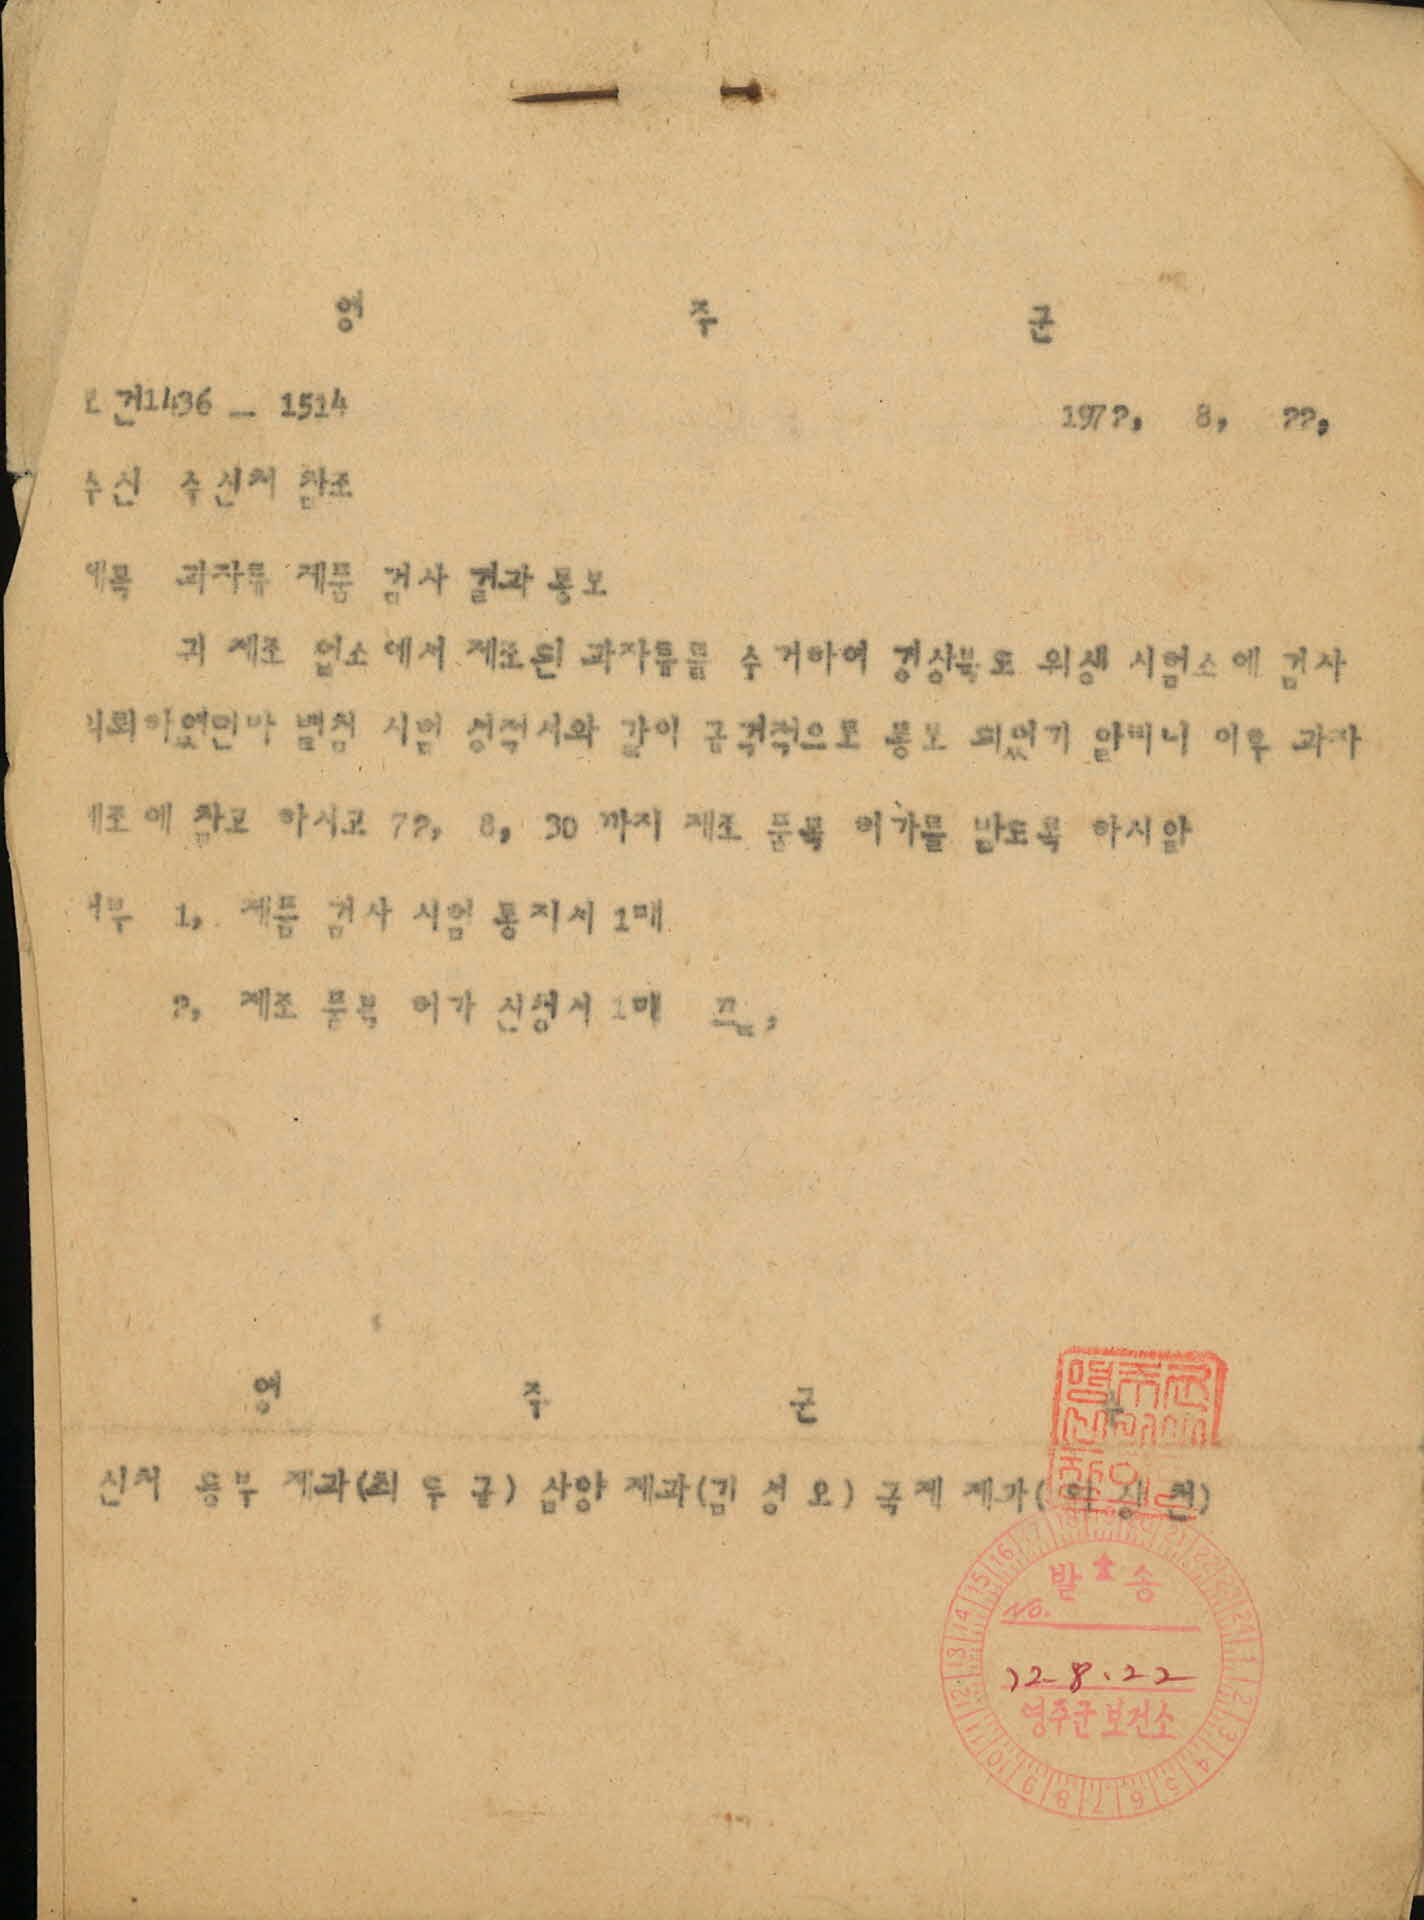 영 주 군
보건1436 — 1514 197?, 8, ??,
수신 수신처 참조
제목 과자류 제품 검사 결과 통보
귀 제조 업소에서 제조된 과자류를 수거하여 경상북도 위생 시험소에 검사
의뢰하였던바 별첨 시험 성적서와 같이 공격적으로 통보 되었기 알리니 이후 과자
제조에 참고 하시고 7?, 8, 30 까지 제조 품목 허가를 받도록 하시앞
첨부 1, 제품 검사 시험 통지서 1매
?, 제조 품목 허가 신청서 1매 끝,
영 주 군 수
신처 동부 제과(최 두 균) 삼양 제과(김 성 오) 국제 제과(
발 송
No.
72-8.22
영주군보건소